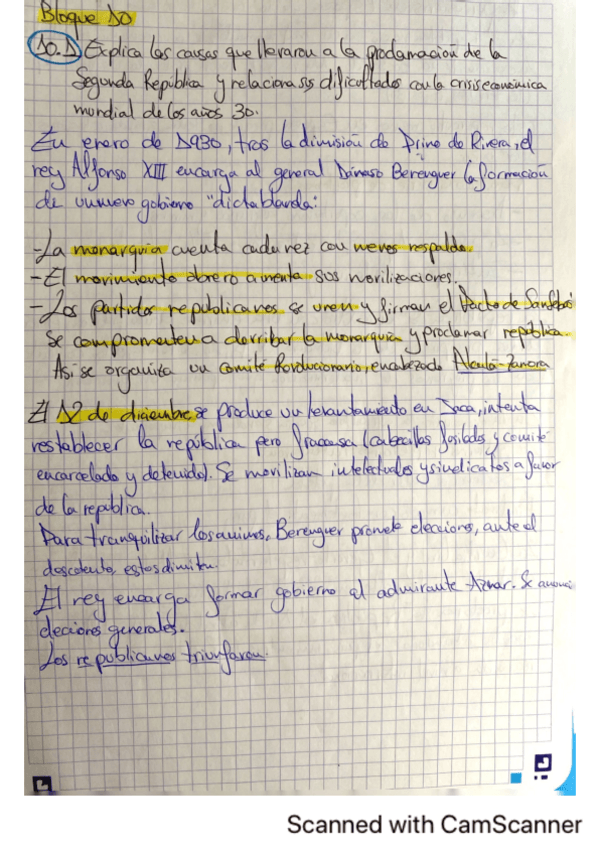 Bloque 10
10.1 Explica las causas que llevaron a la proclamación de la
Segunda República y relaciona sus dificultades con la crisis económica
mundial de los años 30.
En enero de 1930, tras la dimisión de Primo de Rivera, el
rey Alfonso XIII encarga al general Dámaso Berenguer la formación
de un nuevo gobierno "dictablanda:
-La monarquía cuenta cada vez con menos respaldo.
-El movimiento obrero aumenta sus movilizaciones.
-Los partidos republicanos se unen y firman el Pacto de San
Se comprometen a derribar la monarquía y proclamar república.
Así se organiza un Comité Revolucionario, encabezado Alcalá-Zamora
El 12 de diciembre se produce un levantamiento en Jaca, intenta
restablecer la república pero fracasa (cabecillas fusilados y comité
encarcelado y detenido). Se movilizan intelectuales y sindicatos a favor
de la república.
Para tranquilizar los ánimos, Berenguer promete elecciones, ante el
descontento, estos
El rey encarga formar gobierno al almirante Aznar. Se
elecciones generales.
Los republicanos triunfaron.
Scanned with CamScanner